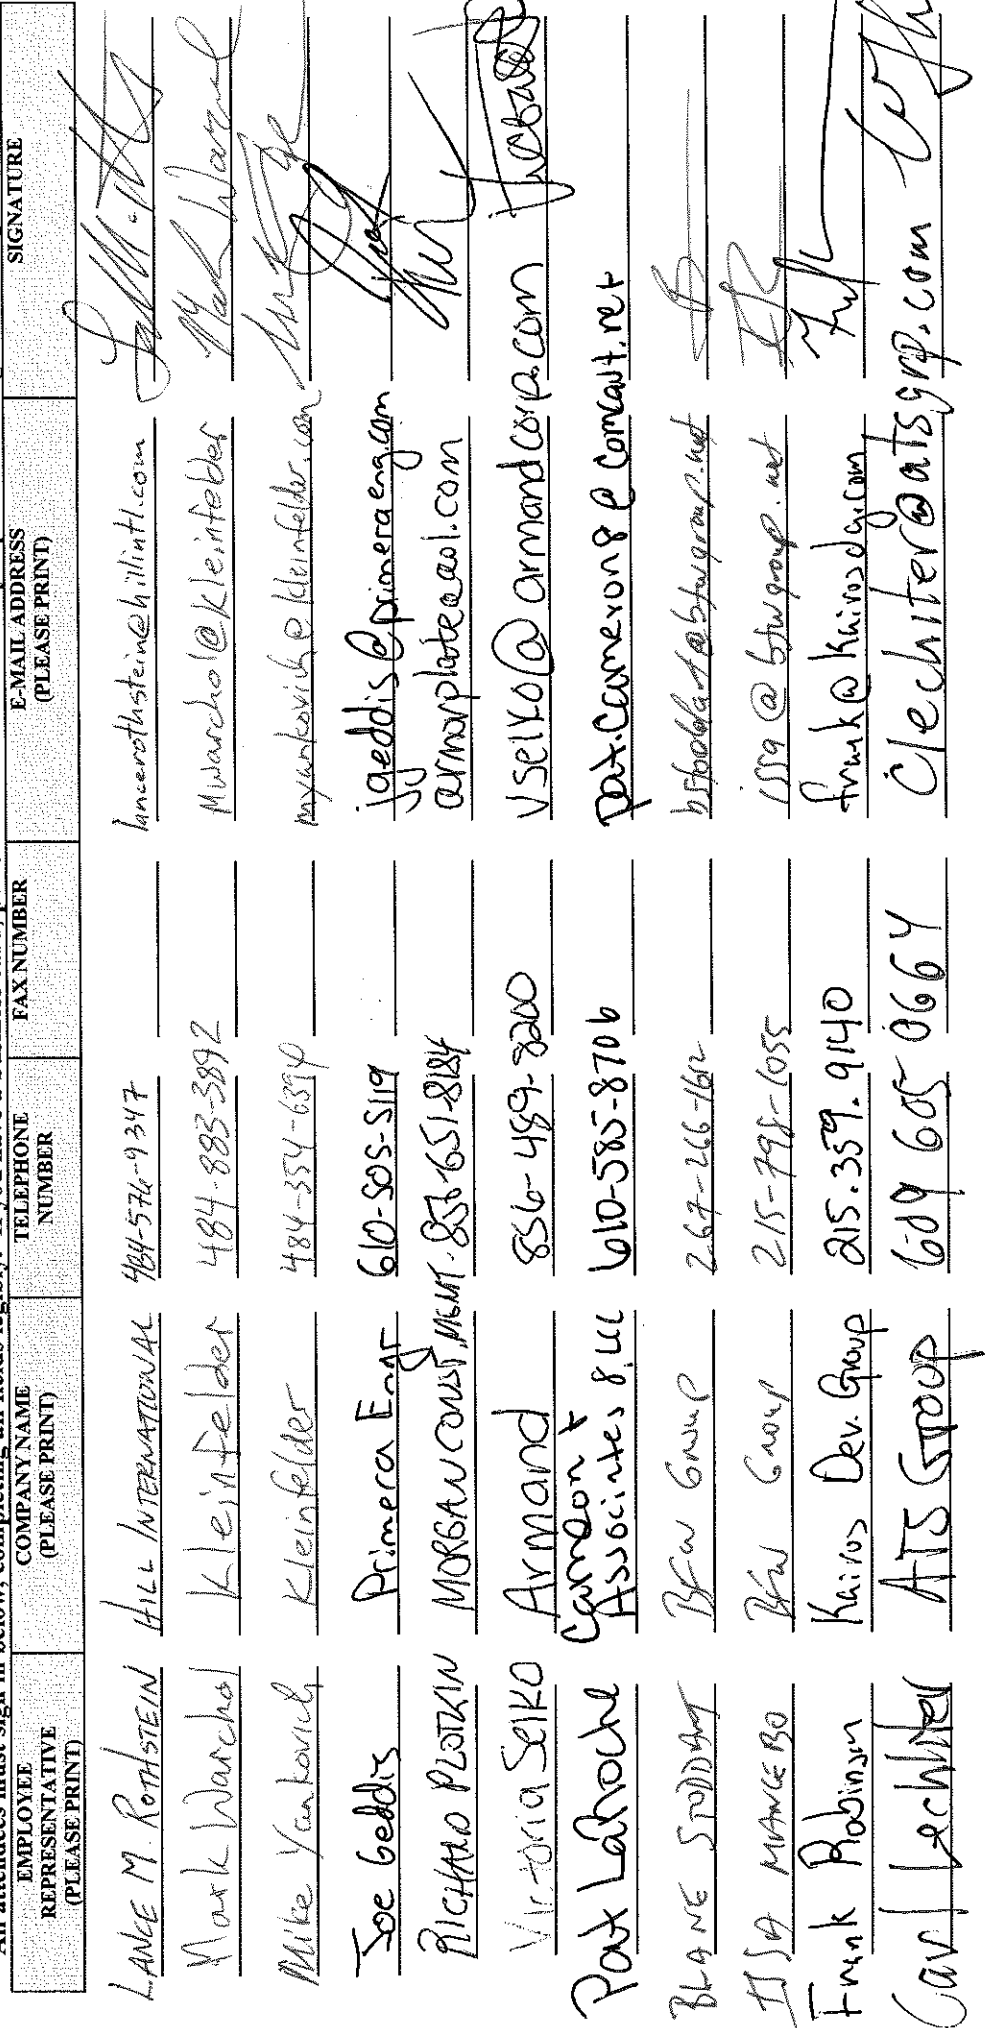 All attendees must sign in below, completing all fields legibly. If you have a business card, p
EMPLOYEE REPRESENTATIVE (PLEASE PRINT) COMPANY NAME (PLEASE PRINT) TELEPHONE NUMBER FAX NUMBER E-MAIL ADDRESS (PLEASE PRINT) SIGNATURE
LANCE M. ROTHSTEIN HILL INTERNATIONAL 484-576-9347 lancerothstein@hillintl.com
Mark Warchol Kleinfelder 484-883-3892 Mwarchol@kleinfelder Mark Warchol
Mike Yankovich Kleinfelder 484-354-6394 myankovich@kleinfelder.com
Joe Geddis Primera Engr 610-505-5119 jgeddis@primeraeng.com
RICHARD PLOTKIN MORGAN CONST. MGMT. 856-651-8184 armorplate@aol.com
Victoria Seiko Armand 856-489-8200 vseiko@armandcorp.com
Pat LaRoche Cameron & Associates 8, LLC 610-585-8706 pat.cameron8@comcast.net
BLANE STODDART BFW Group 267-266-1612
ISSA MIANGEBO BFW Group 215-798-1055 issa@bfwgroup.net
Frank Robinson Kairos Dev. Group 215.359.9140 frank@kairosdgi.com
Carl Lechliter ATS Group 609 605-0664 Clechliter@atsgrp.com